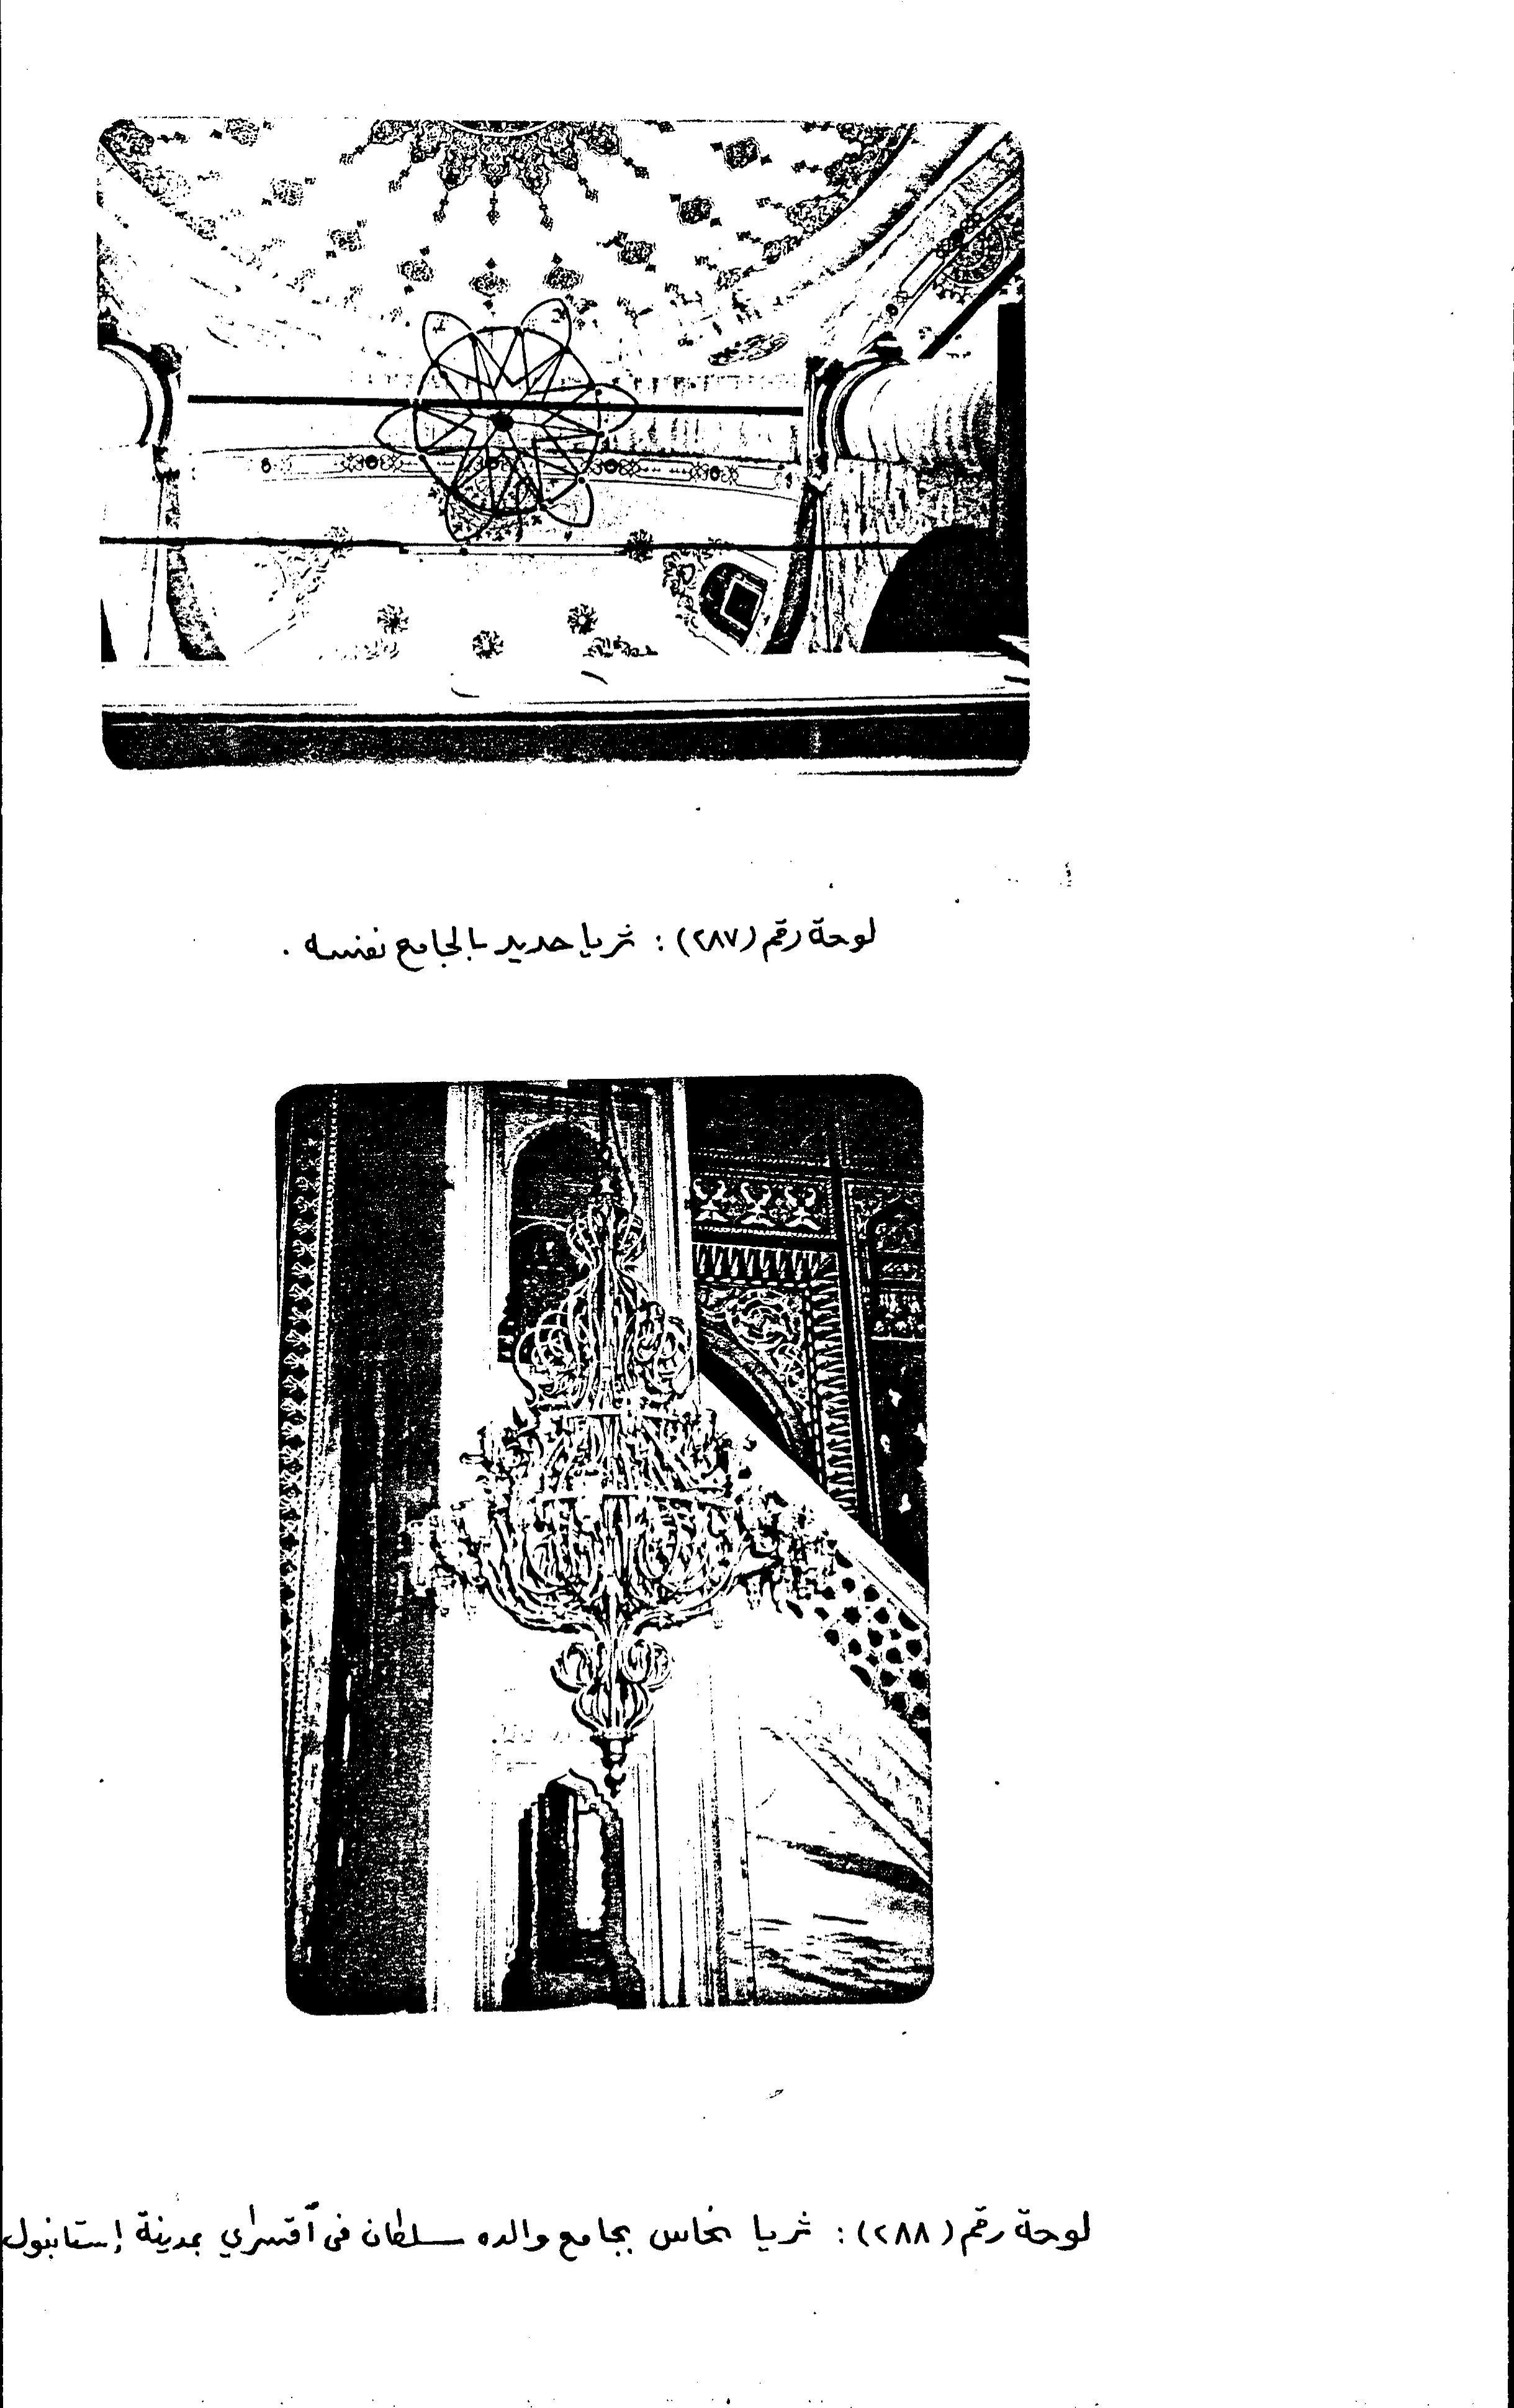 لوحة رقم (٢٨٧) : ثريا حديد بالجامع نفسه .
لوحة رقم (٢٨٨) : ثريا نحاس بجامع والده سلطان فى آقسراي بمدينة إستانبول